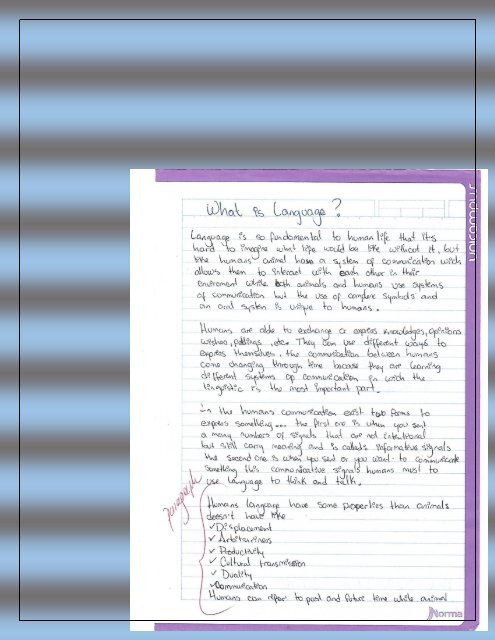 What is Language?
Language is so fundamental to human life that it's
hard to imagine what life would be like without it, but
like humans animal have a system of communication wich
allows them to interact with each other in their
enviroment while both animals and humans use systems
of communication but the use of complex symbols and
an oral system is unique to humans.
Humans are able to exchange or express knowledges, opinions
wishes, fellings, etc. They can use different ways to
express themselves, the communication between humans
come changing through time because they are learning
different systems of communication in wich the
linguistic is the most important part.
In the humans communication exist two forms to
express something... the first one is when you sent
a many numbers of signals that are not intentional
but still carry meaning and is called informative signals
the second one is when you sent or you want to communicate
something this communicative signals humans must to
use language to think and talk.
paragraph
Humans language have some properties than animals
doesn't have like
✓ Displacement
✓ Arbitrariness
✓ Productivity
✓ Cultural transmission
✓ Duality
✓ Communication
Humans can refer to past and future time while animal
Norma